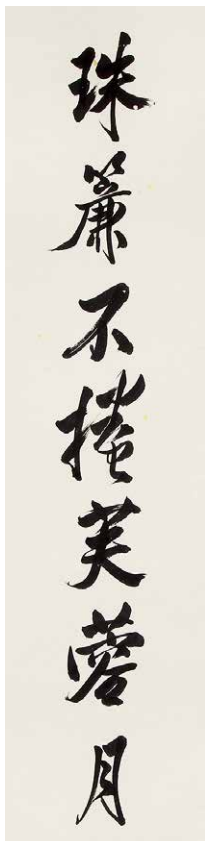 珠簾不捲芙蓉月